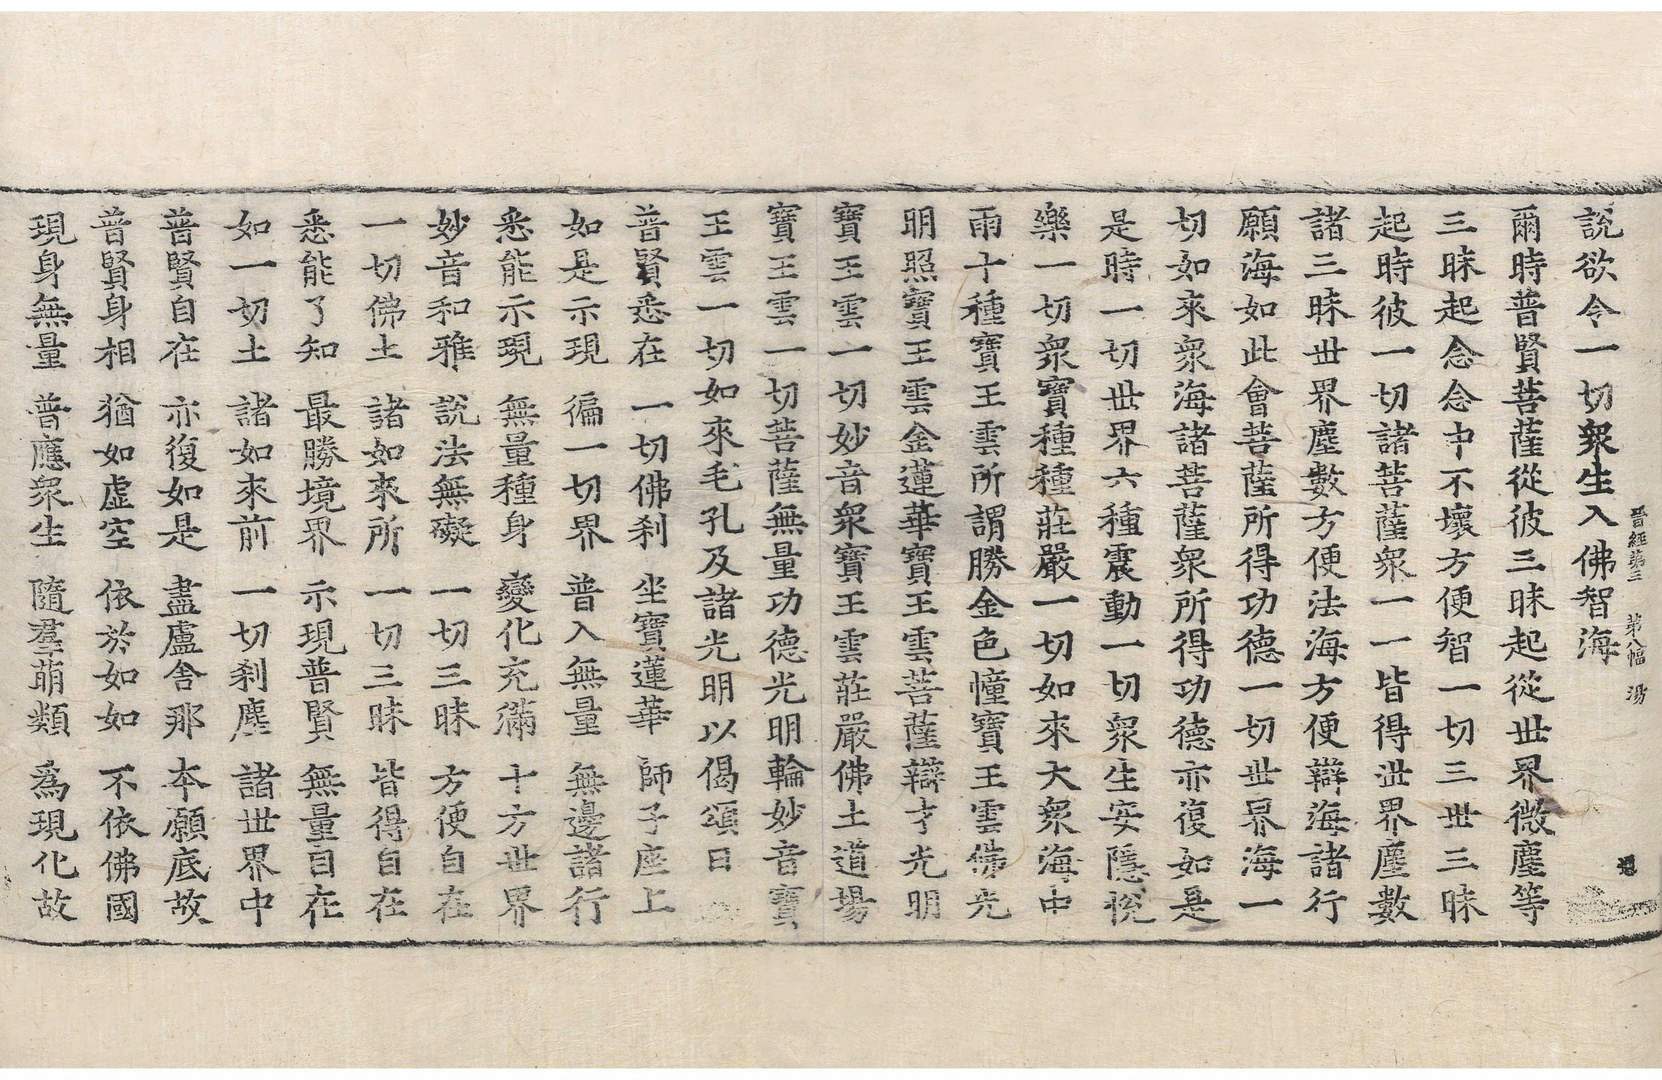 晋經第三　第八幅　湯
說欲令一切衆生入佛智海
爾時普賢菩薩從彼三昧起從世界微塵等
三昧起念念中不壞方便智一切三世三昧
起時彼一切諸菩薩衆一一皆得世界塵數
諸三昧世界塵數方便法海方便辯海諸行
願海如此會菩薩所得功德一切世界海一
切如來衆海諸菩薩衆所得功德亦復如是
是時一切世界六種震動一切衆生安隱悅
樂一切衆寶種種莊嚴一切如來大衆海中
雨十種寶王雲所謂勝金色幢寶王雲佛光
明照寶王雲金蓮華寶王雲菩薩辯才光明
寶王雲一切妙音衆寶王雲莊嚴佛土道場
寶王雲一切菩薩無量功德光明輪妙音寶
王雲一切如來毛孔及諸光明以偈頌曰
普賢悉在　一切佛刹　坐寶蓮華　師子座上
如是示現　徧一切界　普入無量　無邊諸行
悉能示現　無量種身　變化充滿　十方世界
妙音和雅　說法無礙　一切三昧　方便自在
一切佛土　諸如來所　一切三昧　皆得自在
悉能了知　最勝境界　示現普賢　無量自在
如一切土　諸如來前　一切刹塵　諸世界中
普賢自在　亦復如是　盡盧舍那　本願底故
普賢身相　猶如虛空　依於如如　不依佛國
現身無量　普應衆生　隨羣萌類　爲現化故